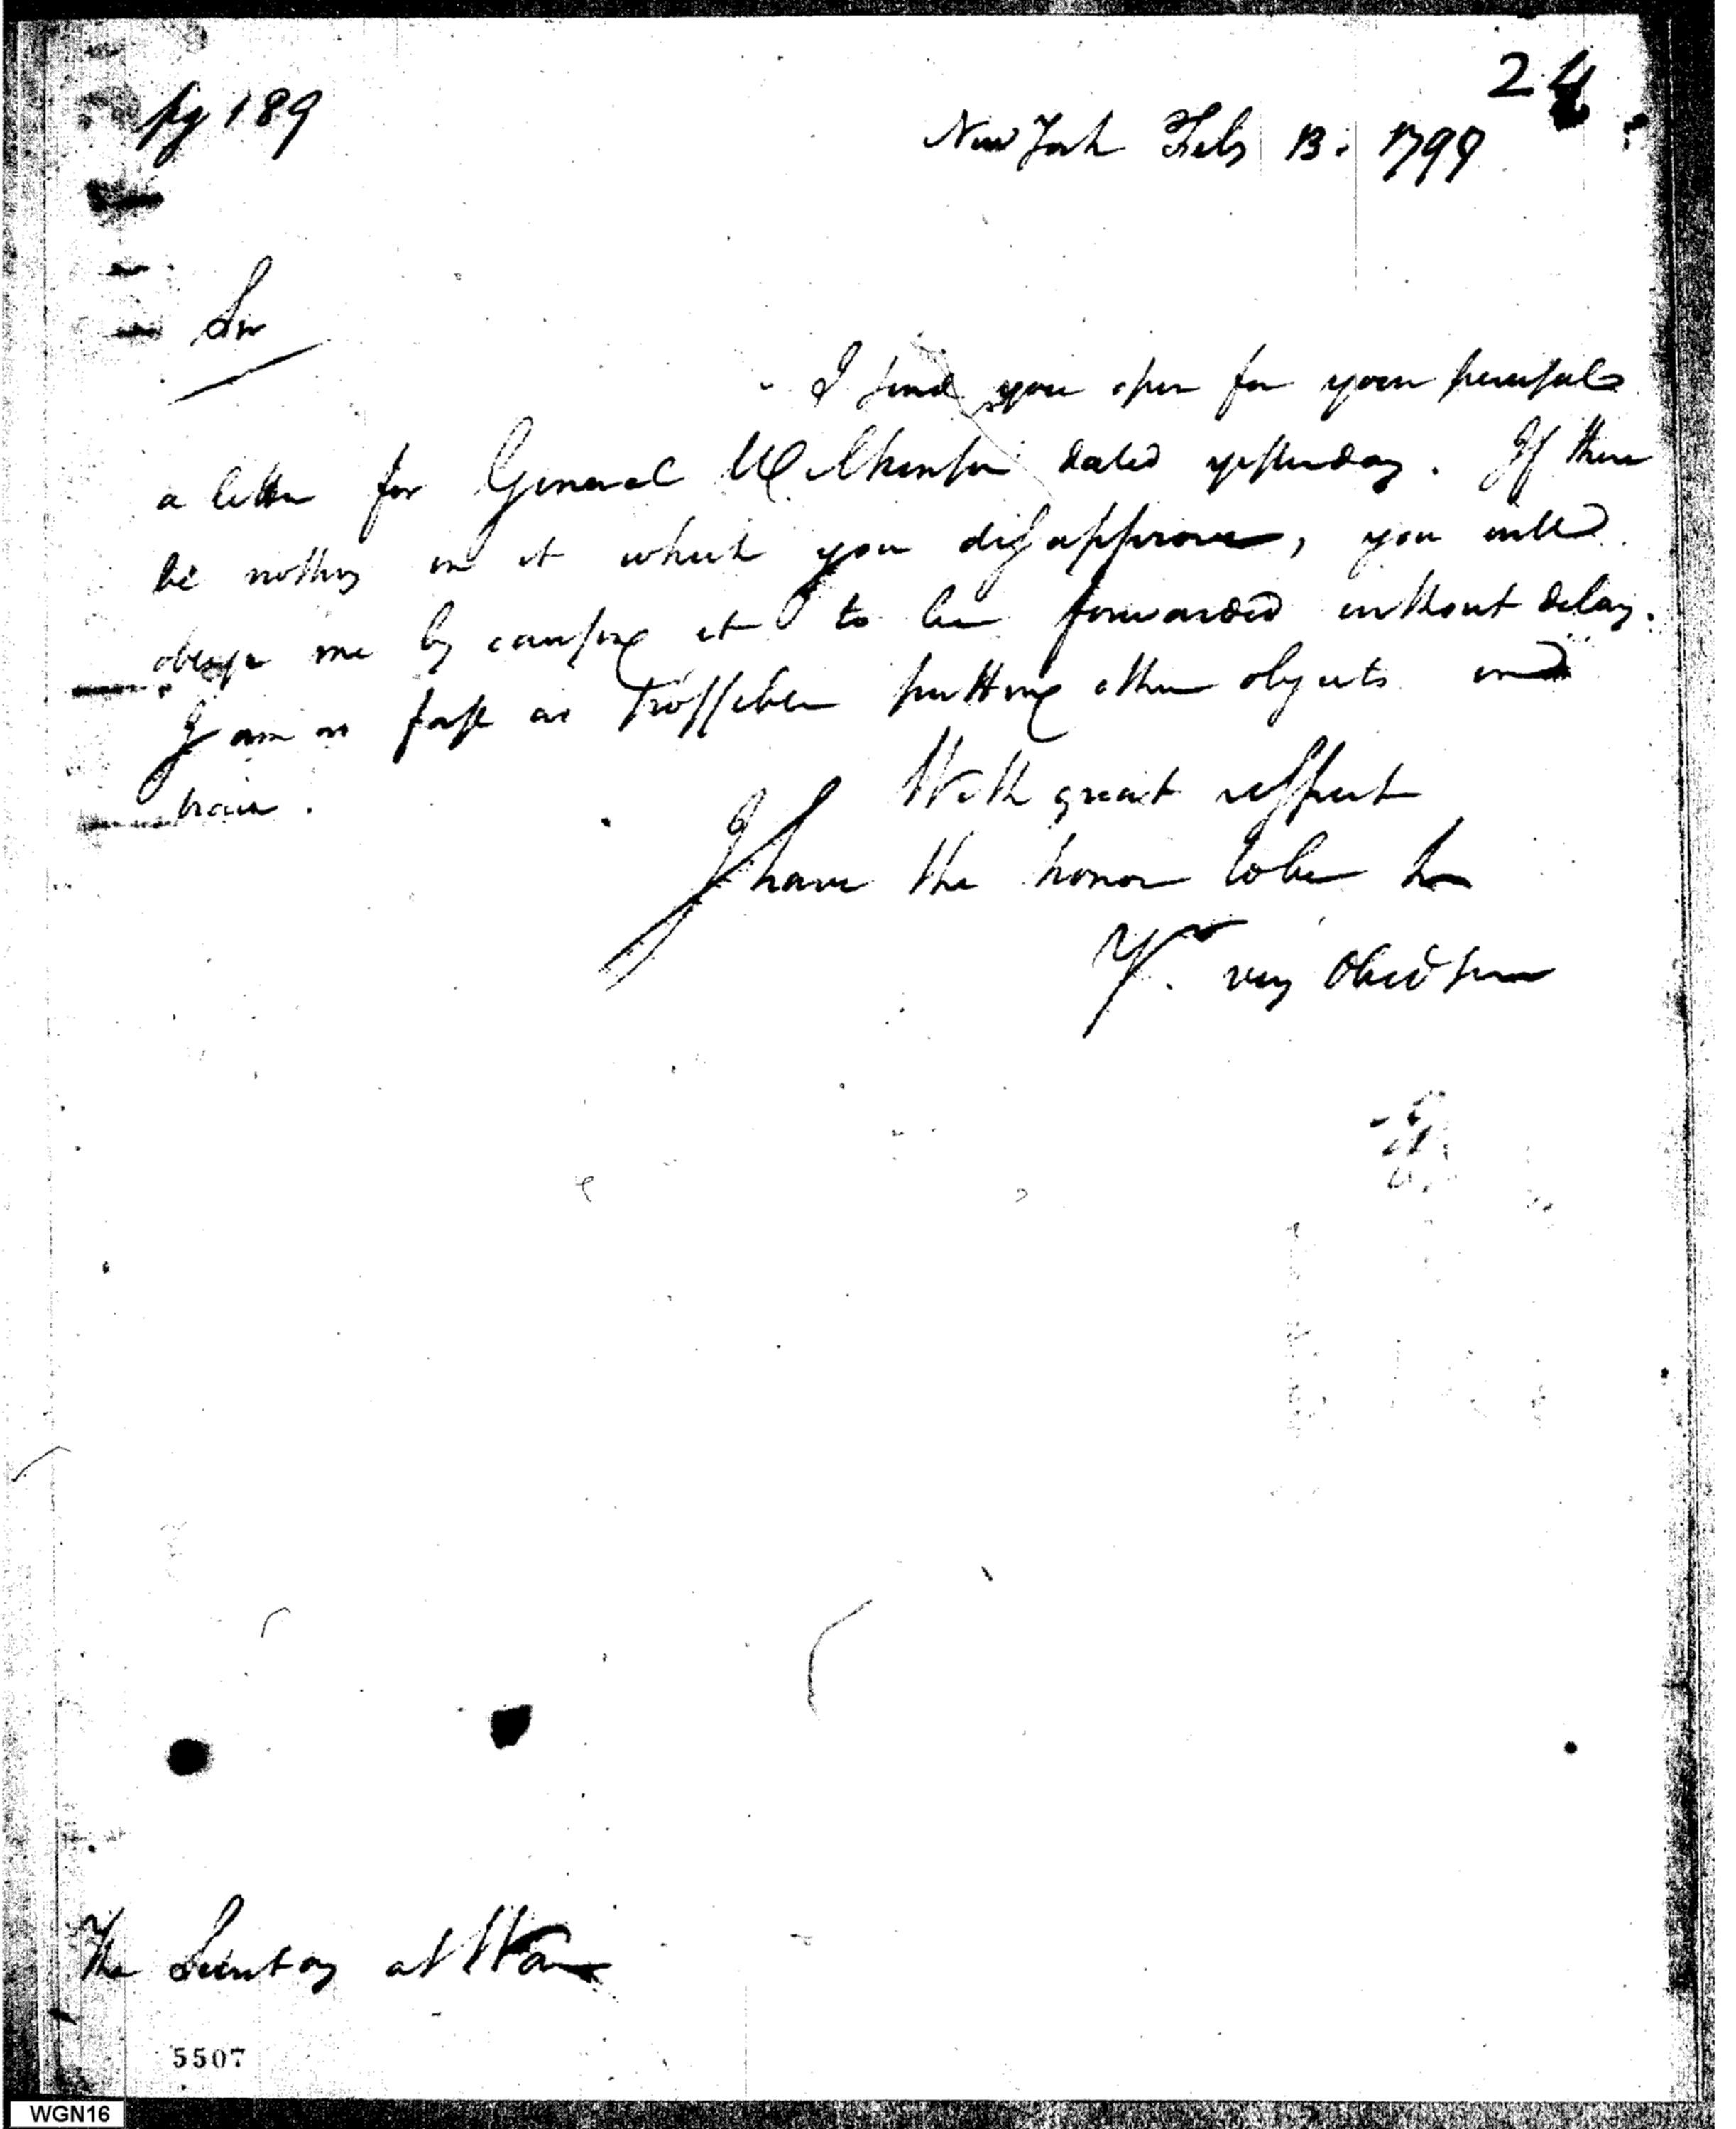 pg 189
24
New York Feby 13. 1799
Sir
I send you open for your perusal
a letter for General Wilkinson dated yesterday. If there
be nothing in it which you disapprove, you will
oblige me by causing it to be forwarded without delay.
I am as fast as possible putting other objects in
train.
With great respect
I have the honor to be Sr
Yr. very Obed ser
The Secretary at War
5507
WGN16